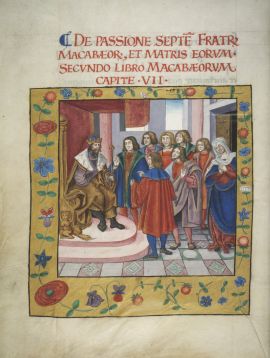 DE PASSIONE SEPTĒ FRATRŪ
MACABÆOR:, ET MATRIS EORVM·
SECVNDO LIBRO MACABÆORVM
CAPITE · VII ·